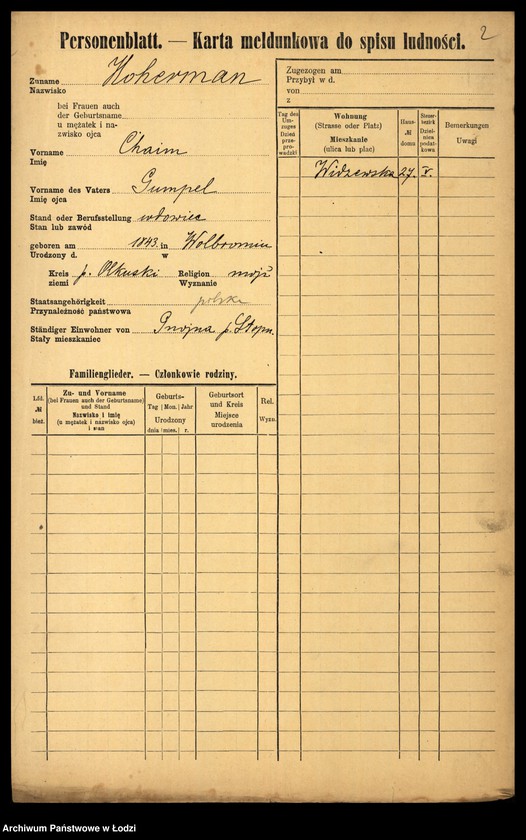 2
Personenblatt. — Karta meldunkowa do spisu ludności.
Zuname Hoherman
Nazwisko
bei Frauen auch
der Geburtsname
u mężatek i na-
zwisko ojca
Vorname Chaim
Imię
Vorname des Vaters Gumpel
Imię ojca
Stand oder Berufsstellung wdowiec
Stan lub zawód
geboren am 1843 in Wolbromiu
Urodzony d. w
Kreis p. Olkuski Religion mojż
ziemi Wyznanie
Staatsangehörigkeit polska
Przynależność państwowa
Ständiger Einwohner von p. Stopn.
Stały mieszkaniec
Zugezogen am
Przybył w d.
von
z
Tag des Um-zuges Dzień przeprowadzki
Wohnung (Strasse oder Platz) Mieszkanie (ulica lub plac)
Haus- № domu
Steuer-bezirk Dzielnica podatkowa
Bemerkungen Uwagi
Widzewska 27. V.
Familienglieder. — Członkowie rodziny.
Lfd. № bież.
Zu- und Vorname (bei Frauen auch der Geburtsname) und Stand Nazwisko i imię (u mężatek i nazwisko ojca) i stan
Geburts- Tag Mon. Jahr Urodzony dnia mies. r.
Geburtsort und Kreis Miejsce urodzenia
Rel. Wyzn.
Archiwum Państwowe w Łodzi